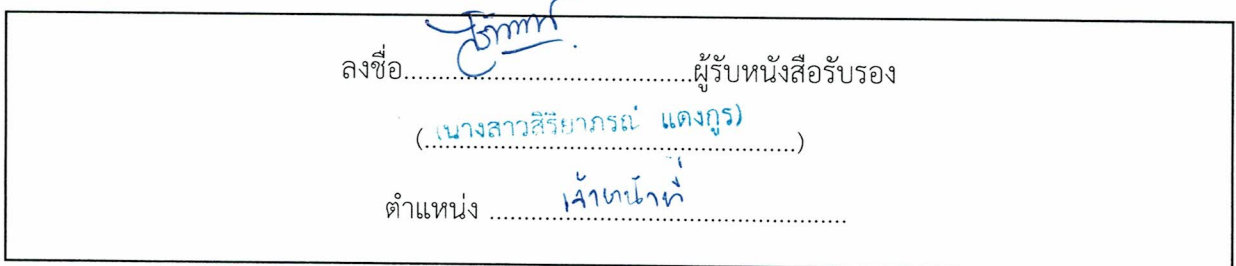 ลงชื่อ........................................ผู้รับหนังสือรับรอง
(นางสาวสิริยาภรณ์ แดงกูร)
(....................................................)
ตำแหน่ง เจ้าหน้าที่